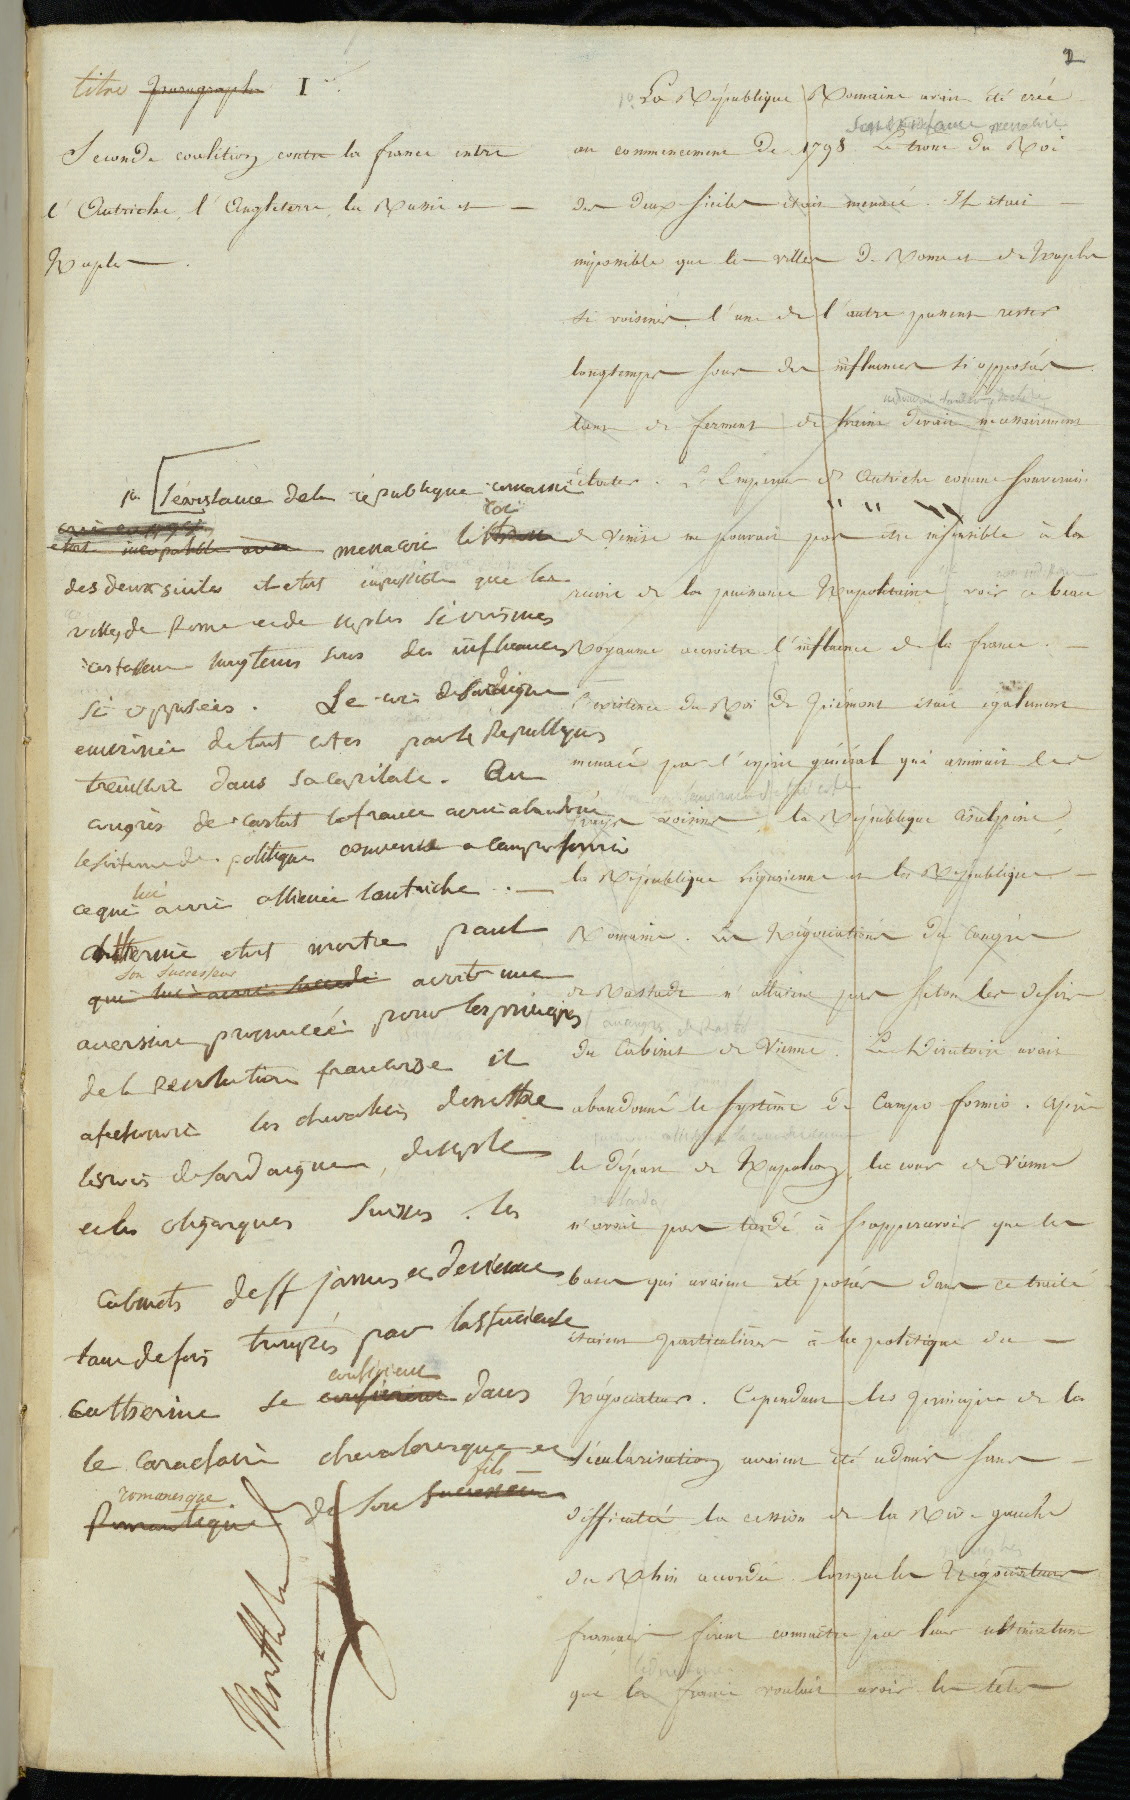 2
titre paragraphe I
Seconde coalition contre la france entre
l'Autriche, l'Angleterre, la Russie et
Naples.
1o La République Romaine avait été créé
Son existance menacoit
au commencement de 1798. Le trone du Roi
des deux Siciles était menacé. Il était
impossible que les villes de Rome et de Naples
si voisines l'une de l'autre pussent rester
longtemps sous des influences si opposées
tant de ferment de haine devait necessairement
éclater. L'Empereur d'Autriche comme souverain
de Venise ne pouvait pas être insensible à la
ruine de la puissance Napolitaine, voir ce beau
Royaume accroitre l'influence de la france.
L'existence du Roi de Piémont était également
menacé par l'esprit général qui animait les
pays voisins, la République Cisalpine,
la République Ligurienne et la République
Romaine. Les Négociations du Congrès
de Rastadt n'allaient pas selon les desirs
du Cabinet de Vienne. Le Directoire avait
abandonné le système de Campo formio. Après
le départ de Napoléon, la cour de Vienne
n'avait pas tardé à s'appercevoir que les
bases qui avaient été posées dans ce traité
étaient particulières à la politique du
Négociateur. Cependant les principes de la
Sécularisation avaient été admis sans
difficulté, la cession de la Rive gauche
du Rhin accordée lorsque les Négociateurs
francais firent connaitre par leur ultimatum
que la france voulait avoir les têtes
1o l'existance de la république romaine
roi
etait incompatible avec menacoit le trone
des deux siciles il etoit impossible que les
villes de Rome et de naples si voisines
restassent longtems sous des influences
si opposées. Le roi de Sardaigne
environné de tout cotés par les Republiques
trembloit dans sa capitale. Au
congrès de rastat la france avoit abandoné
le sisteme de politique convenu a campo formio
ce qui lui avoit alliené lautriche.
Catherine etoit morte paul
son successeur
qui lui avoit succédé avoit une
aversion prononcée pour les principes
de la Revolution francaise il
afectionoit les chevaliers de malthe
les rois de Sardaigne, de naple
et les oligarques Suisses. les
cabinets de st james et de vienne
tant de fois trompés par l'astucieuse
confierent
catherine se confierent dans
le caractaire chevaleresque et
romanesque fils
Romantique de son successeur